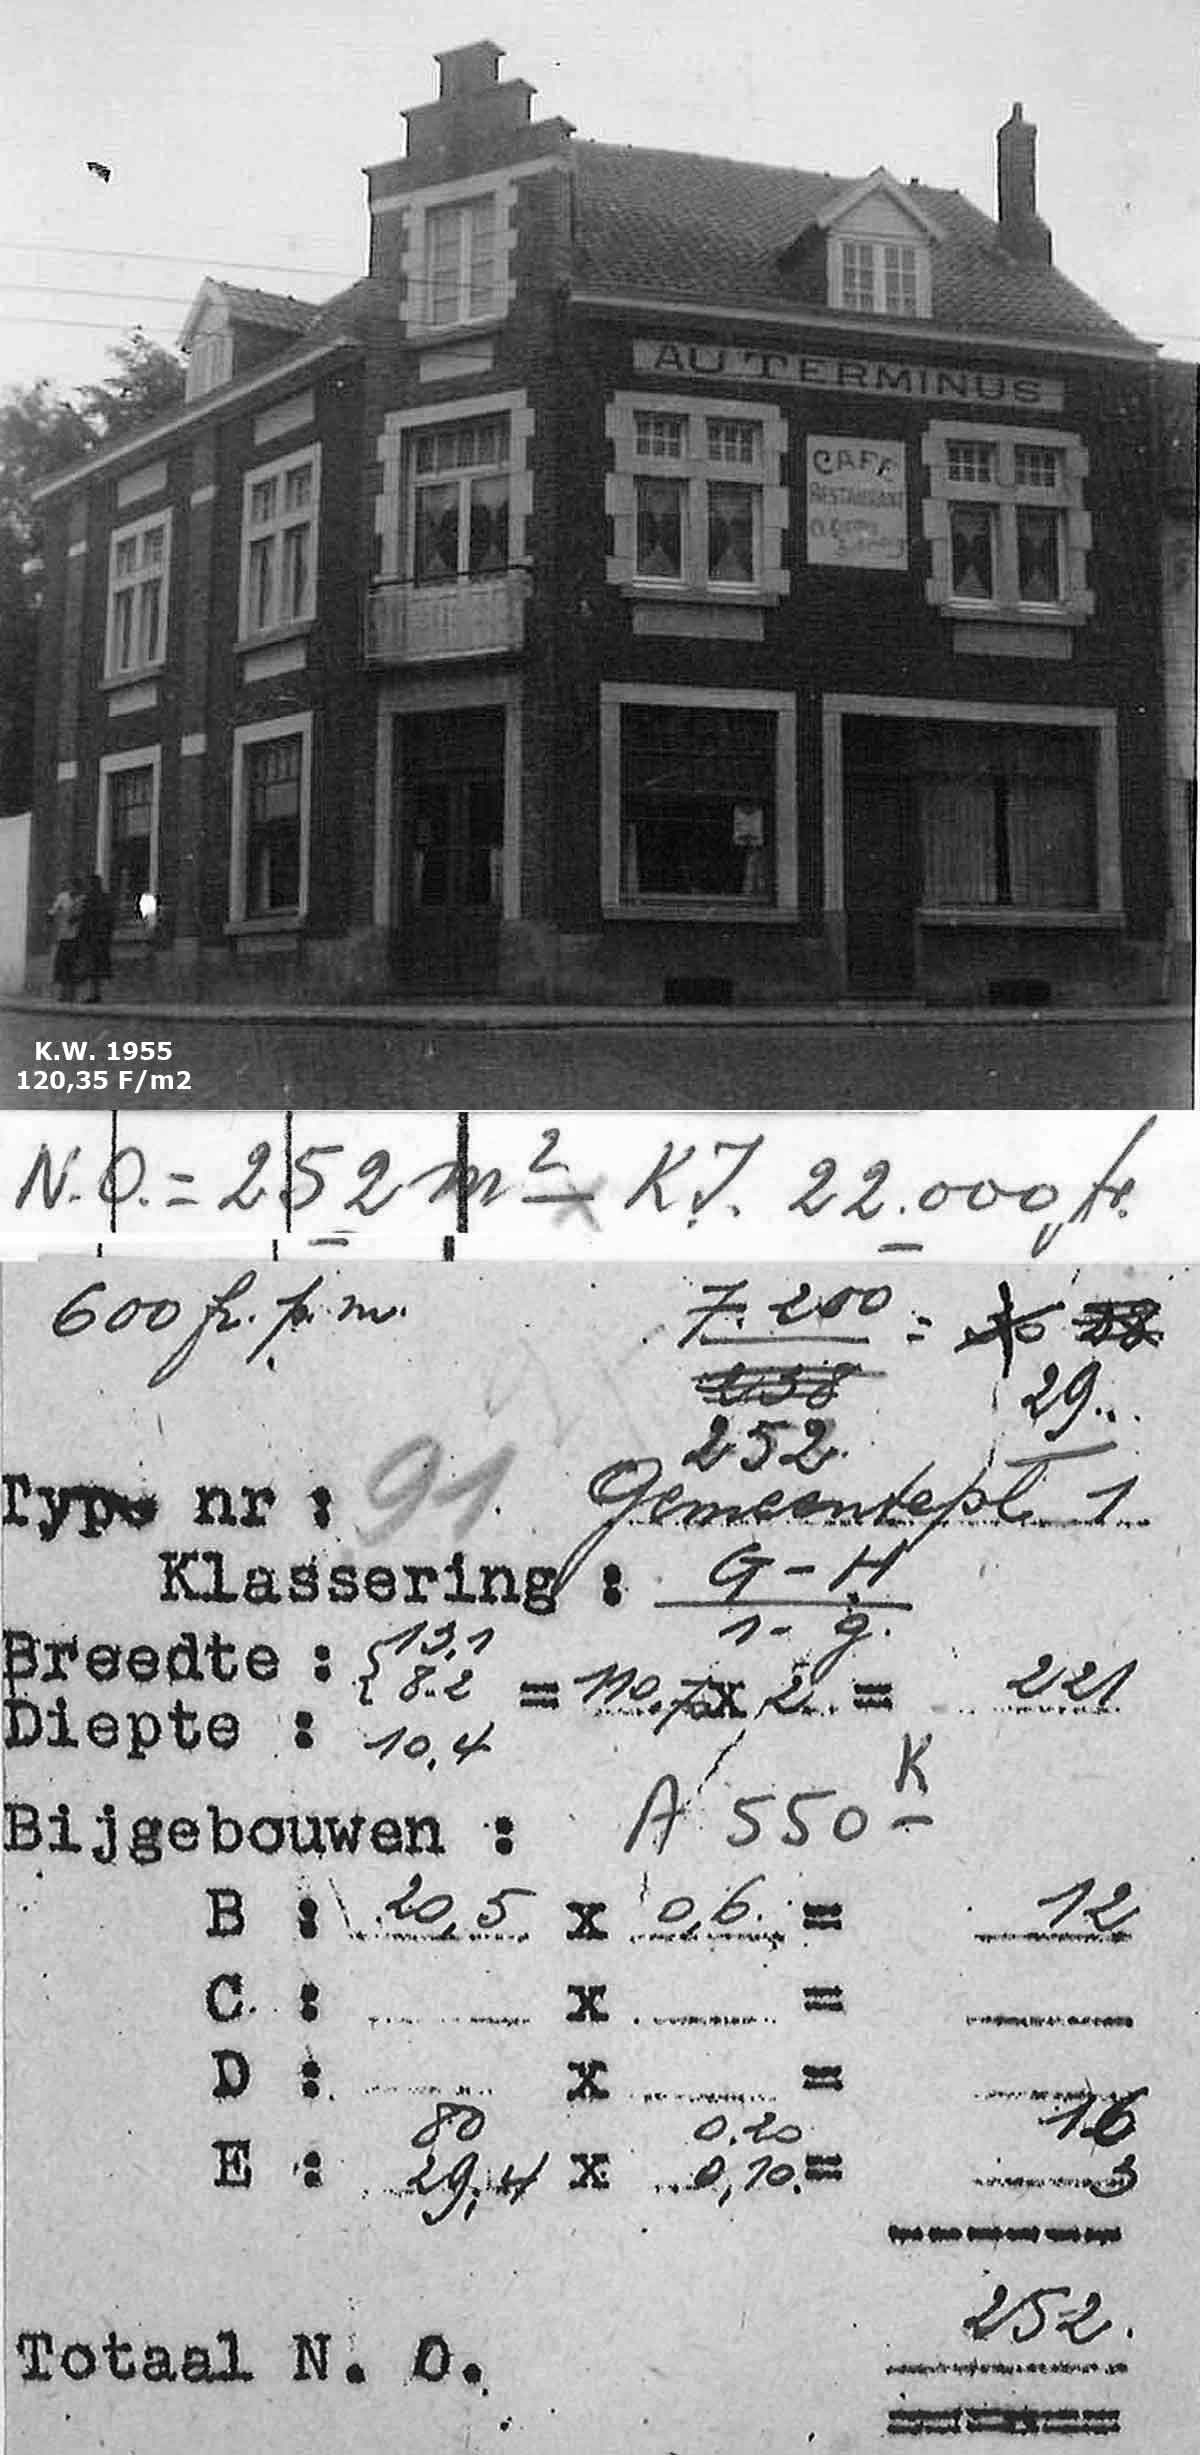 AU TERMINUS
CAFE
RESTAURANT
K.W. 1955
120,35 F/m2
N.O. = 252 m² K.I. 22.000 fr.
600 fr. p. m.
7.200 =
238
29..
252.
Type nr : 91. Gemeentepl. 1
Klassering : G - H
1 - g.
Breedte : { 13,1
8.2 = 110.7 x 2 = 221
Diepte : 10,4
K
Bijgebouwen : A 550 -
B : 20,5 x 0,6. = 12
C. : x =
D : x =
80 0.20 16
E : 29,4 x 0,10. = 3
252.
Totaal N. O.